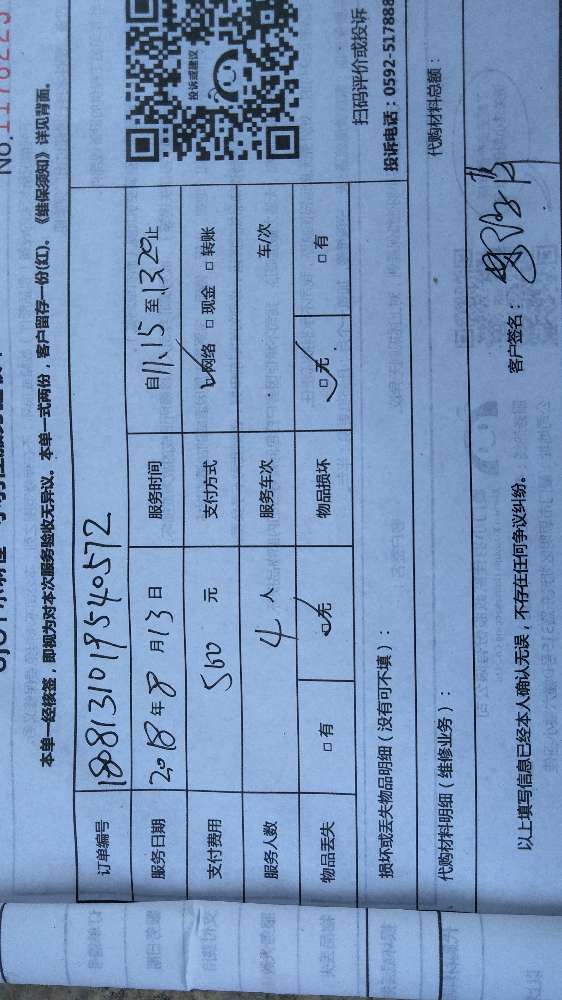 No.1178223
本单一经核签，即视为对本次服务验收无异议。本单一式两份，客户留存一份(红)。《维保须知》详见背面。
订单编号 180813101954 0572
服务日期 2018年8月13日 服务时间 自11.15至13.20止
支付费用 500 元 支付方式 ☑网络 □现金 □转账
服务人数 4 人 服务车次 车/次
物品丢失 □有 ☑无 物品损坏 ☑无 □有
投诉或建议
扫码评价或投诉
投诉电话：0592-517888
损坏或丢失物品明细（没有可不填）：
代购材料明细（维修业务）： 代购材料总额：
以上填写信息已经本人确认无误，不存在任何争议纠纷。 客户签名：